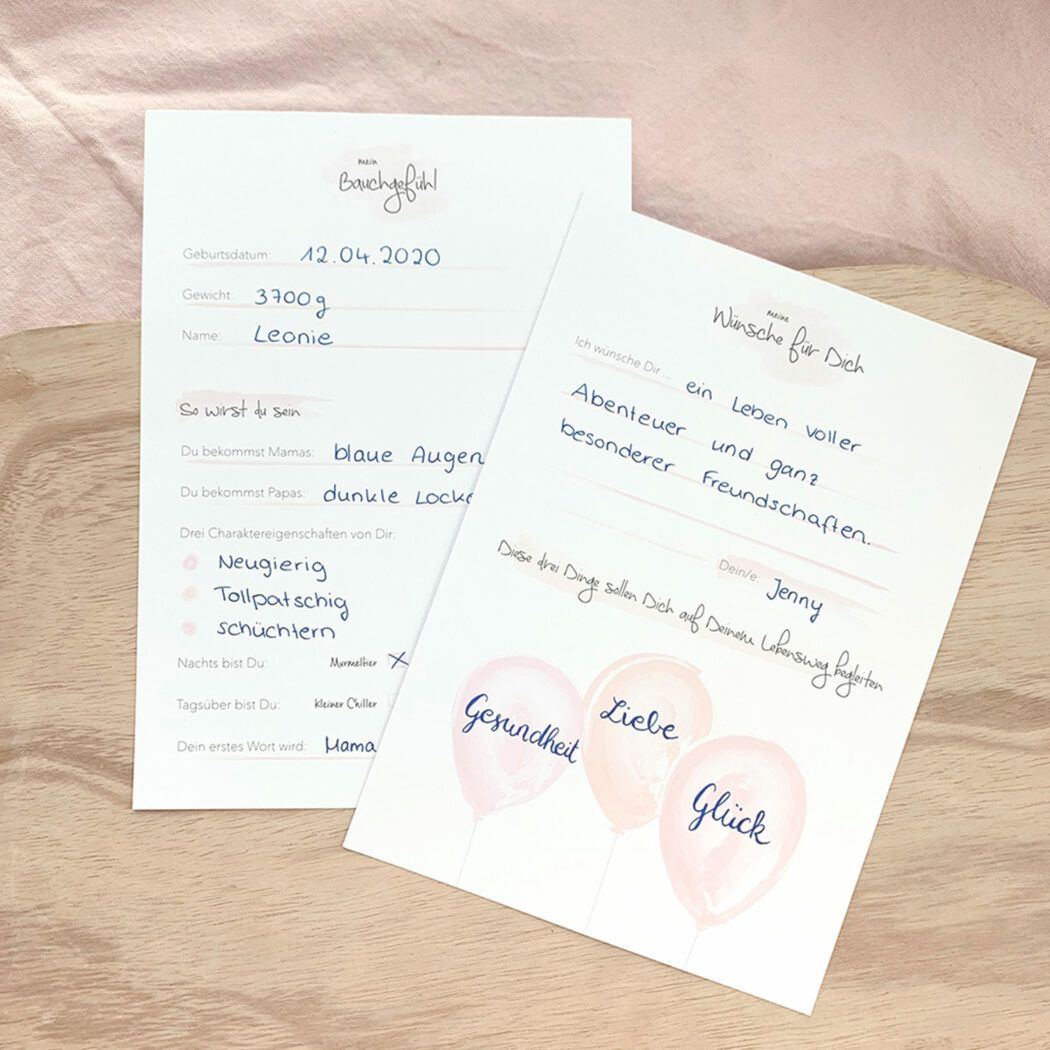 mein
Bauchgefühl
Geburtsdatum: 12.04.2020
Gewicht: 3700g
Name: Leonie
So wirst du sein
Du bekommst Mamas: blaue Augen
Du bekommst Papas: dunkle Locke
Drei Charaktereigenschaften von Dir:
Neugierig
Tollpatschig
schüchtern
Nachts bist Du: Murmeltier X
Tagsüber bist Du: kleiner Chiller
Dein erstes Wort wird: Mama
meine
Wünsche für Dich
Ich wünsche Dir ... ein Leben voller
Abenteuer und ganz
besonderer Freundschaften.
Dein/e: Jenny
Diese drei Dinge sollen Dich auf Deinem Lebensweg begleiten
Gesundheit
Liebe
Glück